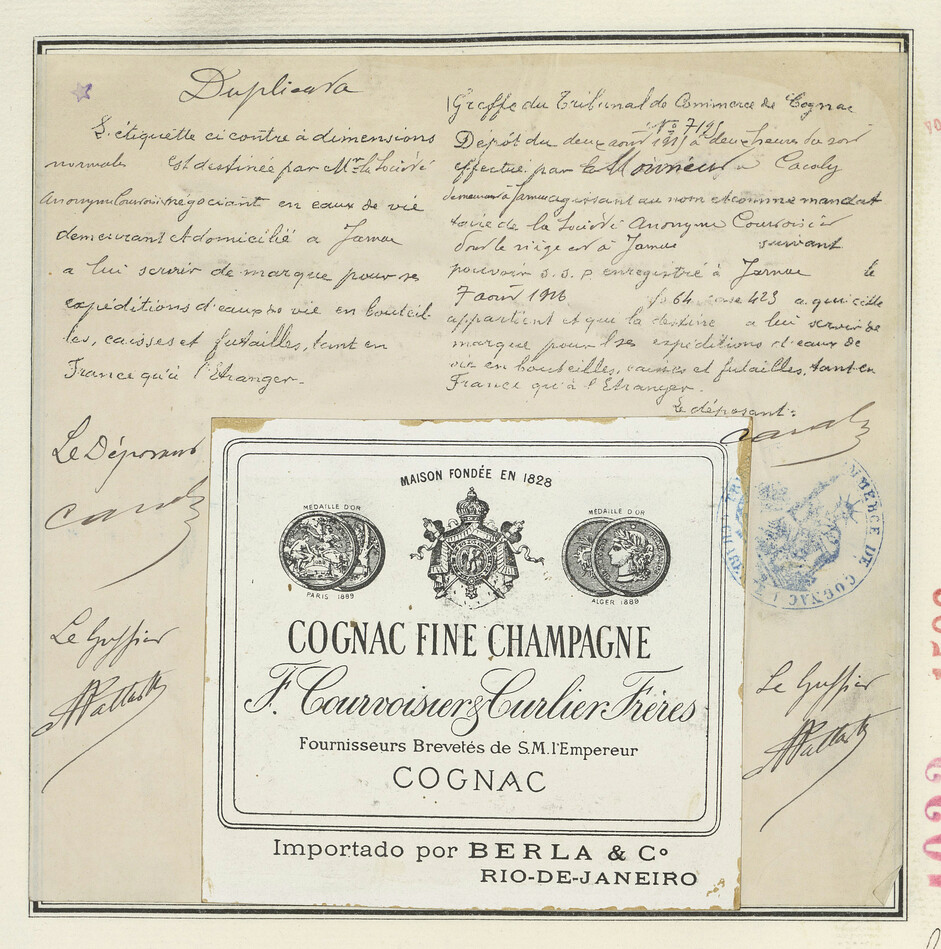 Duplicata
L'étiquette ci contre à dimensions
normales est destinée par Mr la Société
Anonyme Courvoisier négociant en eaux de vie
demeurant et domicilié a Jarnac
a lui servir de marque pour ses
expéditions d'eaux de vie en bouteil
les, caisses et futailles, tant en
France qu'à l'Etranger.
Le Déposant
Le Greffier
Greffe du Tribunal de Commerce de Cognac
No 7195
Dépôt du deux août à deux heures du soir
effectué par le Monsieur
demeurant à Jarnac agissant au nom et comme mandat
taire de la Société Anonyme Courvoisier
dont le siège est à Jarnac suivant
pouvoir s.s.p enregistré à Jarnac le
7 août 1926 fo 64 case 423 a qui cette
appartient et que la destine a lui servir de
marque pour ses expéditions d'eaux de
vie en bouteilles, caisses et futailles, tant en
France qu'à l'Etranger.
Le déposant:
COMMERCE DE COGNAC
Le Greffier
MAISON FONDÉE EN 1828
MÉDAILLE D'OR
PARIS 1889
MÉDAILLE D'OR
ALGER 1889
COGNAC FINE CHAMPAGNE
F. Courvoisier & Curlier Frères
Fournisseurs Brevetés de S.M. l'Empereur
COGNAC
Importado por BERLA & Co
RIO-DE-JANEIRO